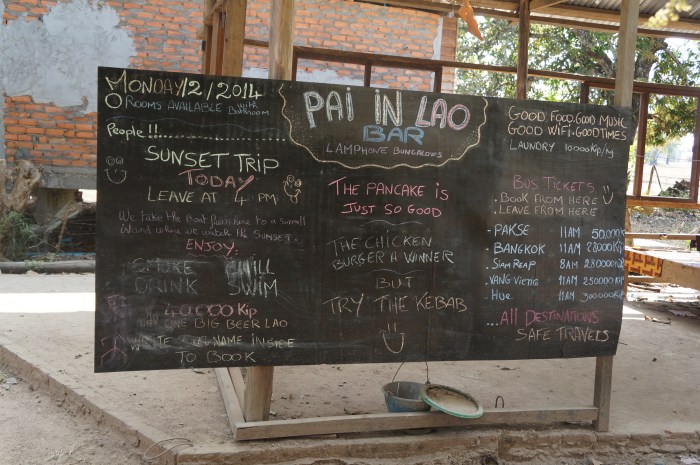 MONDAY/2/2014
O ROOMS AVAILABLE WITH BATHROOM
People !!
SUNSET TRIP
TODAY
LEAVE AT 4 PM
We take the Boat from here to a small
Island where we watch the SUNSET.
ENJOY:
SMOKE CHILL
DRINK SWIM
40.000 Kip
ONE BIG BEER LAO
WRITE NAME INSIDE
TO BOOK
PAI IN LAO
BAR
LAMPHONE BUNGALOWS
THE PANCAKE IS
JUST SO GOOD
THE CHICKEN
BURGER A WINNER
BUT
TRY THE KEBAB
GOOD FOOD. GOOD MUSIC
GOOD WIFI. GOOD TIMES
LAUNDRY 10000Kip/kg
BUS TICKETS
. BOOK FROM HERE
. LEAVE FROM HERE
- PAKSE 11AM 50.000
- BANGKOK 11AM 28000 Kip
- SIAM REAP 8AM 280000
- VANG VICTIA 11AM 250000
- HUE 11AM 300000 Kip
...ALL DESTINATIONS
SAFE TRAVELS